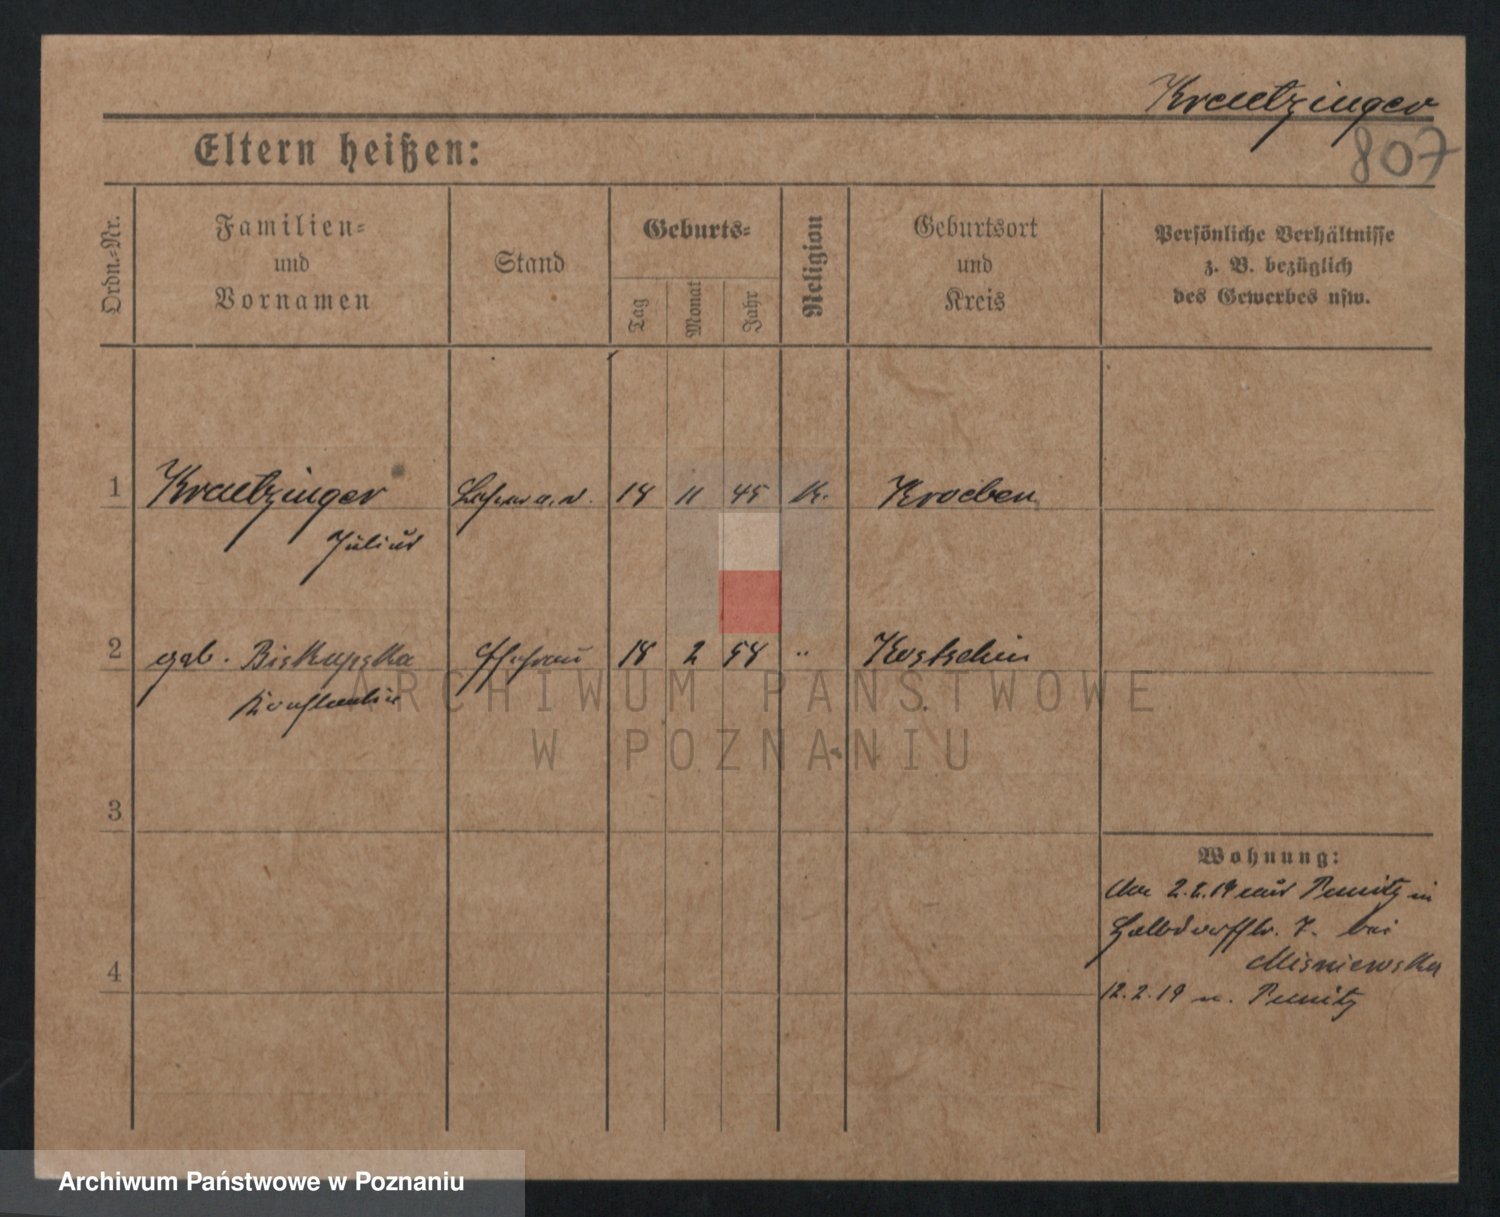 Kreutzinger
807
Eltern heißen:
Ordn.-Nr.
Familien-
und
Vornamen
Stand
Geburts-
Tag
Monat
Jahr
Religion
Geburtsort
und
Kreis
Persönliche Verhältnisse
z. B. bezüglich
des Gewerbes usw.
1 Kreutzinger Lehrer a. D. 18 11 45 K. Kroeben
Julius
2 geb. Biskupska Ehefrau 18 2 54 " Kostschin
Konstantia
ARCHIWUM PAŃSTWOWE
W POZNANIU
3
4
Wohnung:
2.2.19 aus Punitz in
Halbdorffstr. 7. bei
Misniewska
12.2.19 n. Punitz
Archiwum Państwowe w Poznaniu